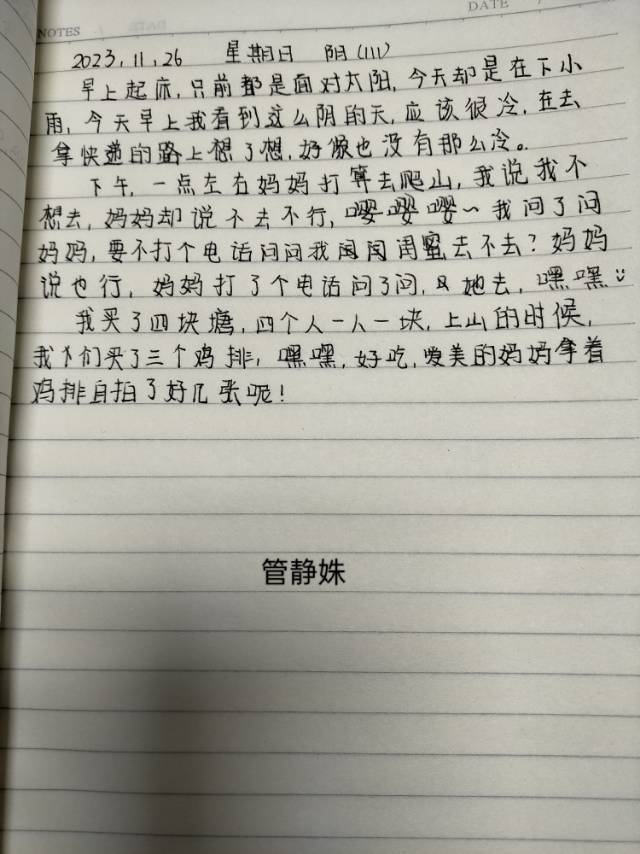 NOTES
DATE
2023.11.26 星期日 阴(111)
早上起床,只前都是面对太阳,今天却是在下小
雨,今天早上我看到这么阴的天,应该很冷,在去
拿快递的路上想了想,好像也没有那么冷。
下午,一点左右妈妈打算去爬山,我说我不
想去,妈妈却说不去不行,嘤嘤嘤~我问了问
妈妈,要不打个电话问问我闺闺蜜去不去?妈妈
说也行,妈妈打了个电话问了问,她去,嘿嘿
我买了四块糖,四个人一人一块,上山的时候,
我们买了三个鸡排,嘿嘿,好吃,爱美的妈妈拿着
鸡排自拍了好几张呢!
管静姝